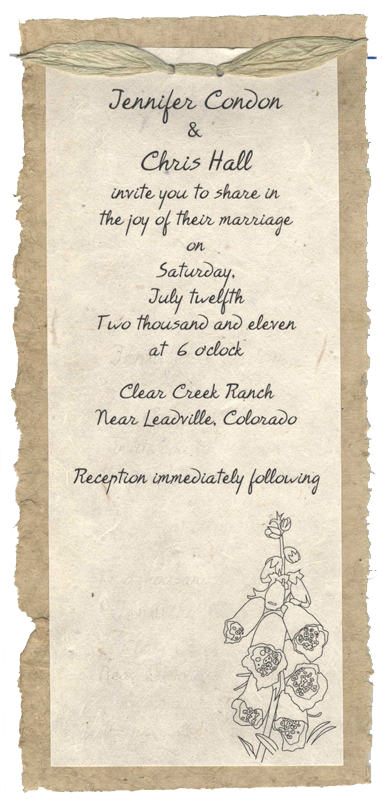 Jennifer Condon
&
Chris Hall
invite you to share in
the joy of their marriage
on
Saturday,
July twelfth
Two thousand and eleven
at 6 o'clock
Clear Creek Ranch
Near Leadville, Colorado
Reception immediately following